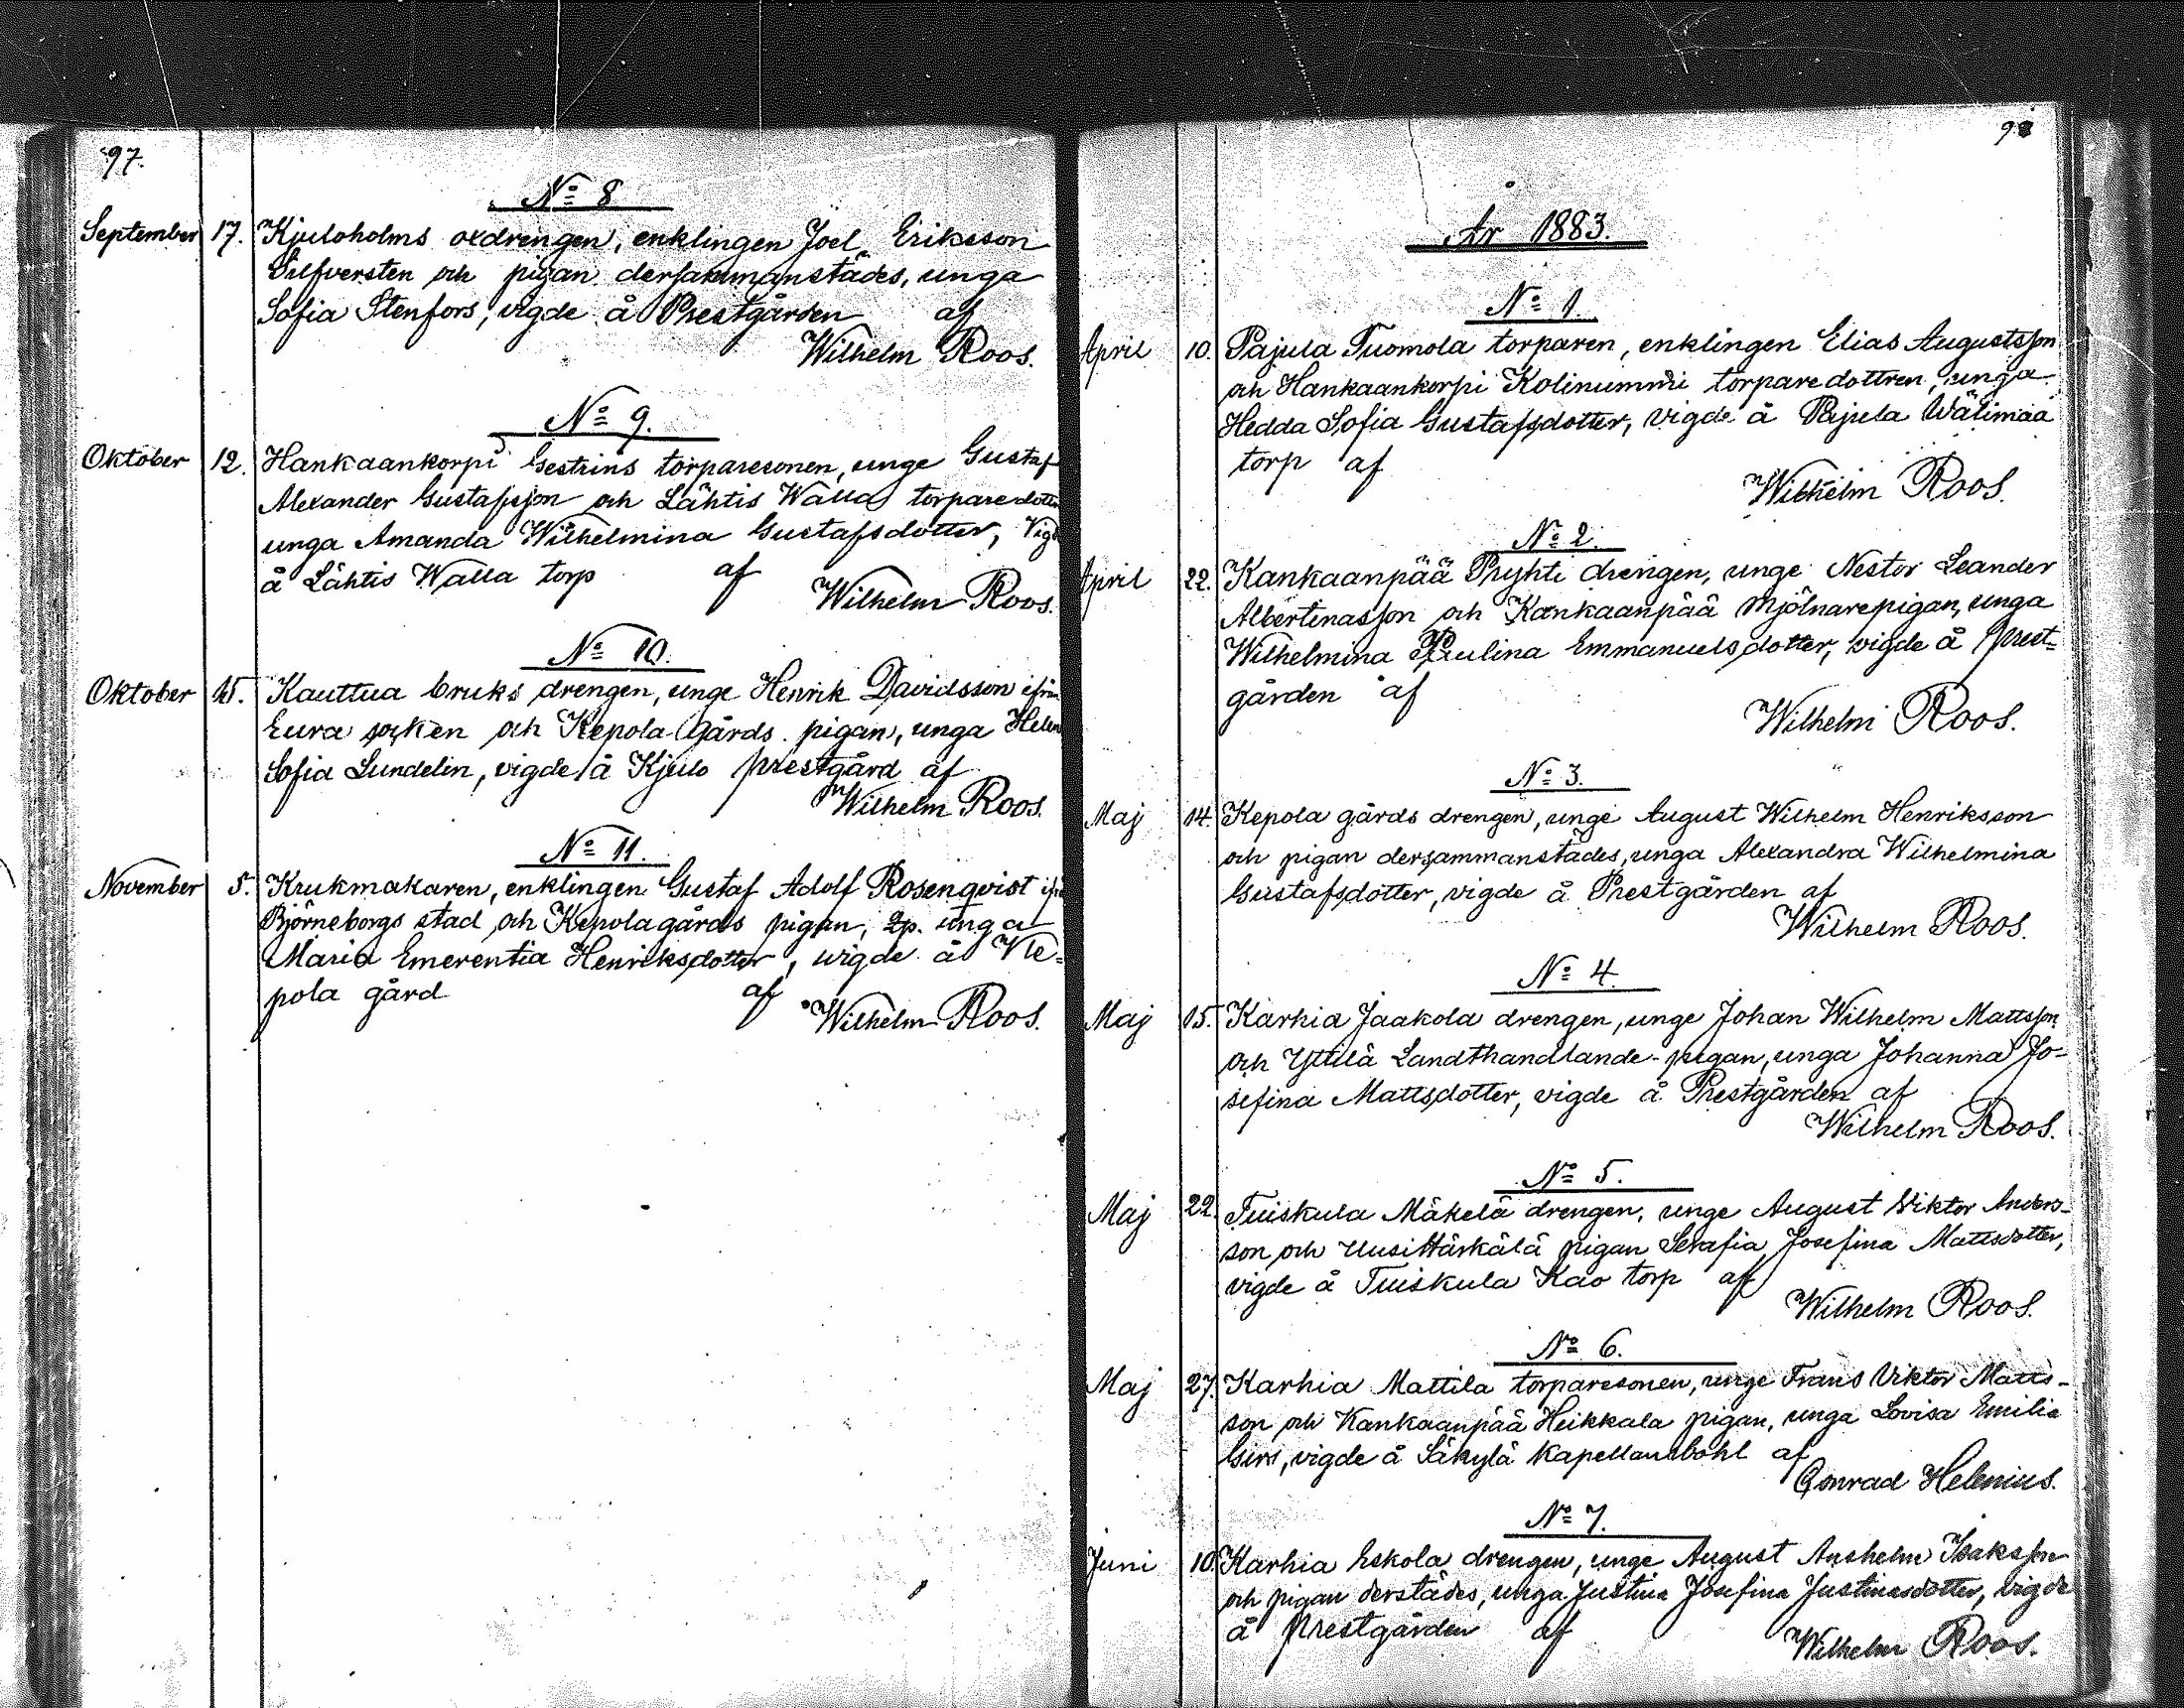 97.
No 8
September 17. Kjuloholms oxdrengen, enklingen Joel Eriksson
Silfversten och pigan dersammanstädes, unga
Sofia Stenfors, vigde å Prestgården af
Wilhelm Roos.
No 9.
Oktober 12. Hankaankorpi Gestrins torparesonen, unge Gustaf
Alexander Gustafsson och Lähtis Walla torparedotter
unga Amanda Wilhelmina Gustafsdotter, Vigde
å Lähtis Walla torp af
Wilhelm Roos.
No 10.
Oktober 15. Kauttua bruks drengen, unge Henrik Davidsson ifrån
Eura socken och Kepola Gårds pigan, unga Helena
Sofia Lundelin, vigde å Kjulo prestgård af
Wilhelm Roos.
No 11.
November 5. Krukmakaren, enklingen Gustaf Adolf Rosenqvist ifrån
Björneborgs stad och Kepola gårds pigan, unga
Maria Emerentia Henriksdotter, wigde å Ke-
pola gård af
Wilhelm Roos.
98
År 1883.
No 1.
April 10. Pajula Tuomola torparen, enklingen Elias Augustsson
och Hankaankorpi Kolinummi torparedottren, unga
Hedda Sofia Gustafsdotter, vigde å Pajula Wälimaa
torp af
Wilhelm Roos.
No 2.
April 22. Kankaanpää Pryhti drengen, unge Nestor Leander
Albertinasson och Kankaanpää Mjölnarepigan, unga
Wilhelmina Paulina Emmanuelsdotter, vigde å prest-
gården af
Wilhelm Roos.
No 3.
Maj 14. Kepola gårds drengen, unge August Wilhelm Henriksson
och pigan dersammanstädes, unga Alexandra Wilhelmina
Gustafsdotter, vigde å Prestgården af
Wilhelm Roos.
No 4.
Maj 15. Karhia Jaakola drengen, unge Johan Wilhelm Mattsson
och Yttilä Landthandlande-pigan, unga Johanna Jo-
sefina Mattsdotter, vigde å Prestgården af
Wilhelm Roos.
No 5.
Maj 22. Tuiskula Mäkelä drengen, unge August Viktor Anders-
son och UusiHärkälä pigan Serafia Josefina Mattsdotter,
vigde å Tuiskula Kao torp af
Wilhelm Roos.
No 6.
Maj 27. Karhia Mattila torparesonen, unge Frans Viktor Matts-
son och Kankaanpää Heikkala pigan, unga Lovisa Emilia
Girs, vigde å Säkylä Kapellansbohl af
Conrad Helenius.
No 7.
Juni 10. Karhia Eskola drengen, unge August Anshelm Isaksson
och pigan derstädes, unga Justina Josefina Justinasdotter, vigde
å Prestgården af
Wilhelm Roos.